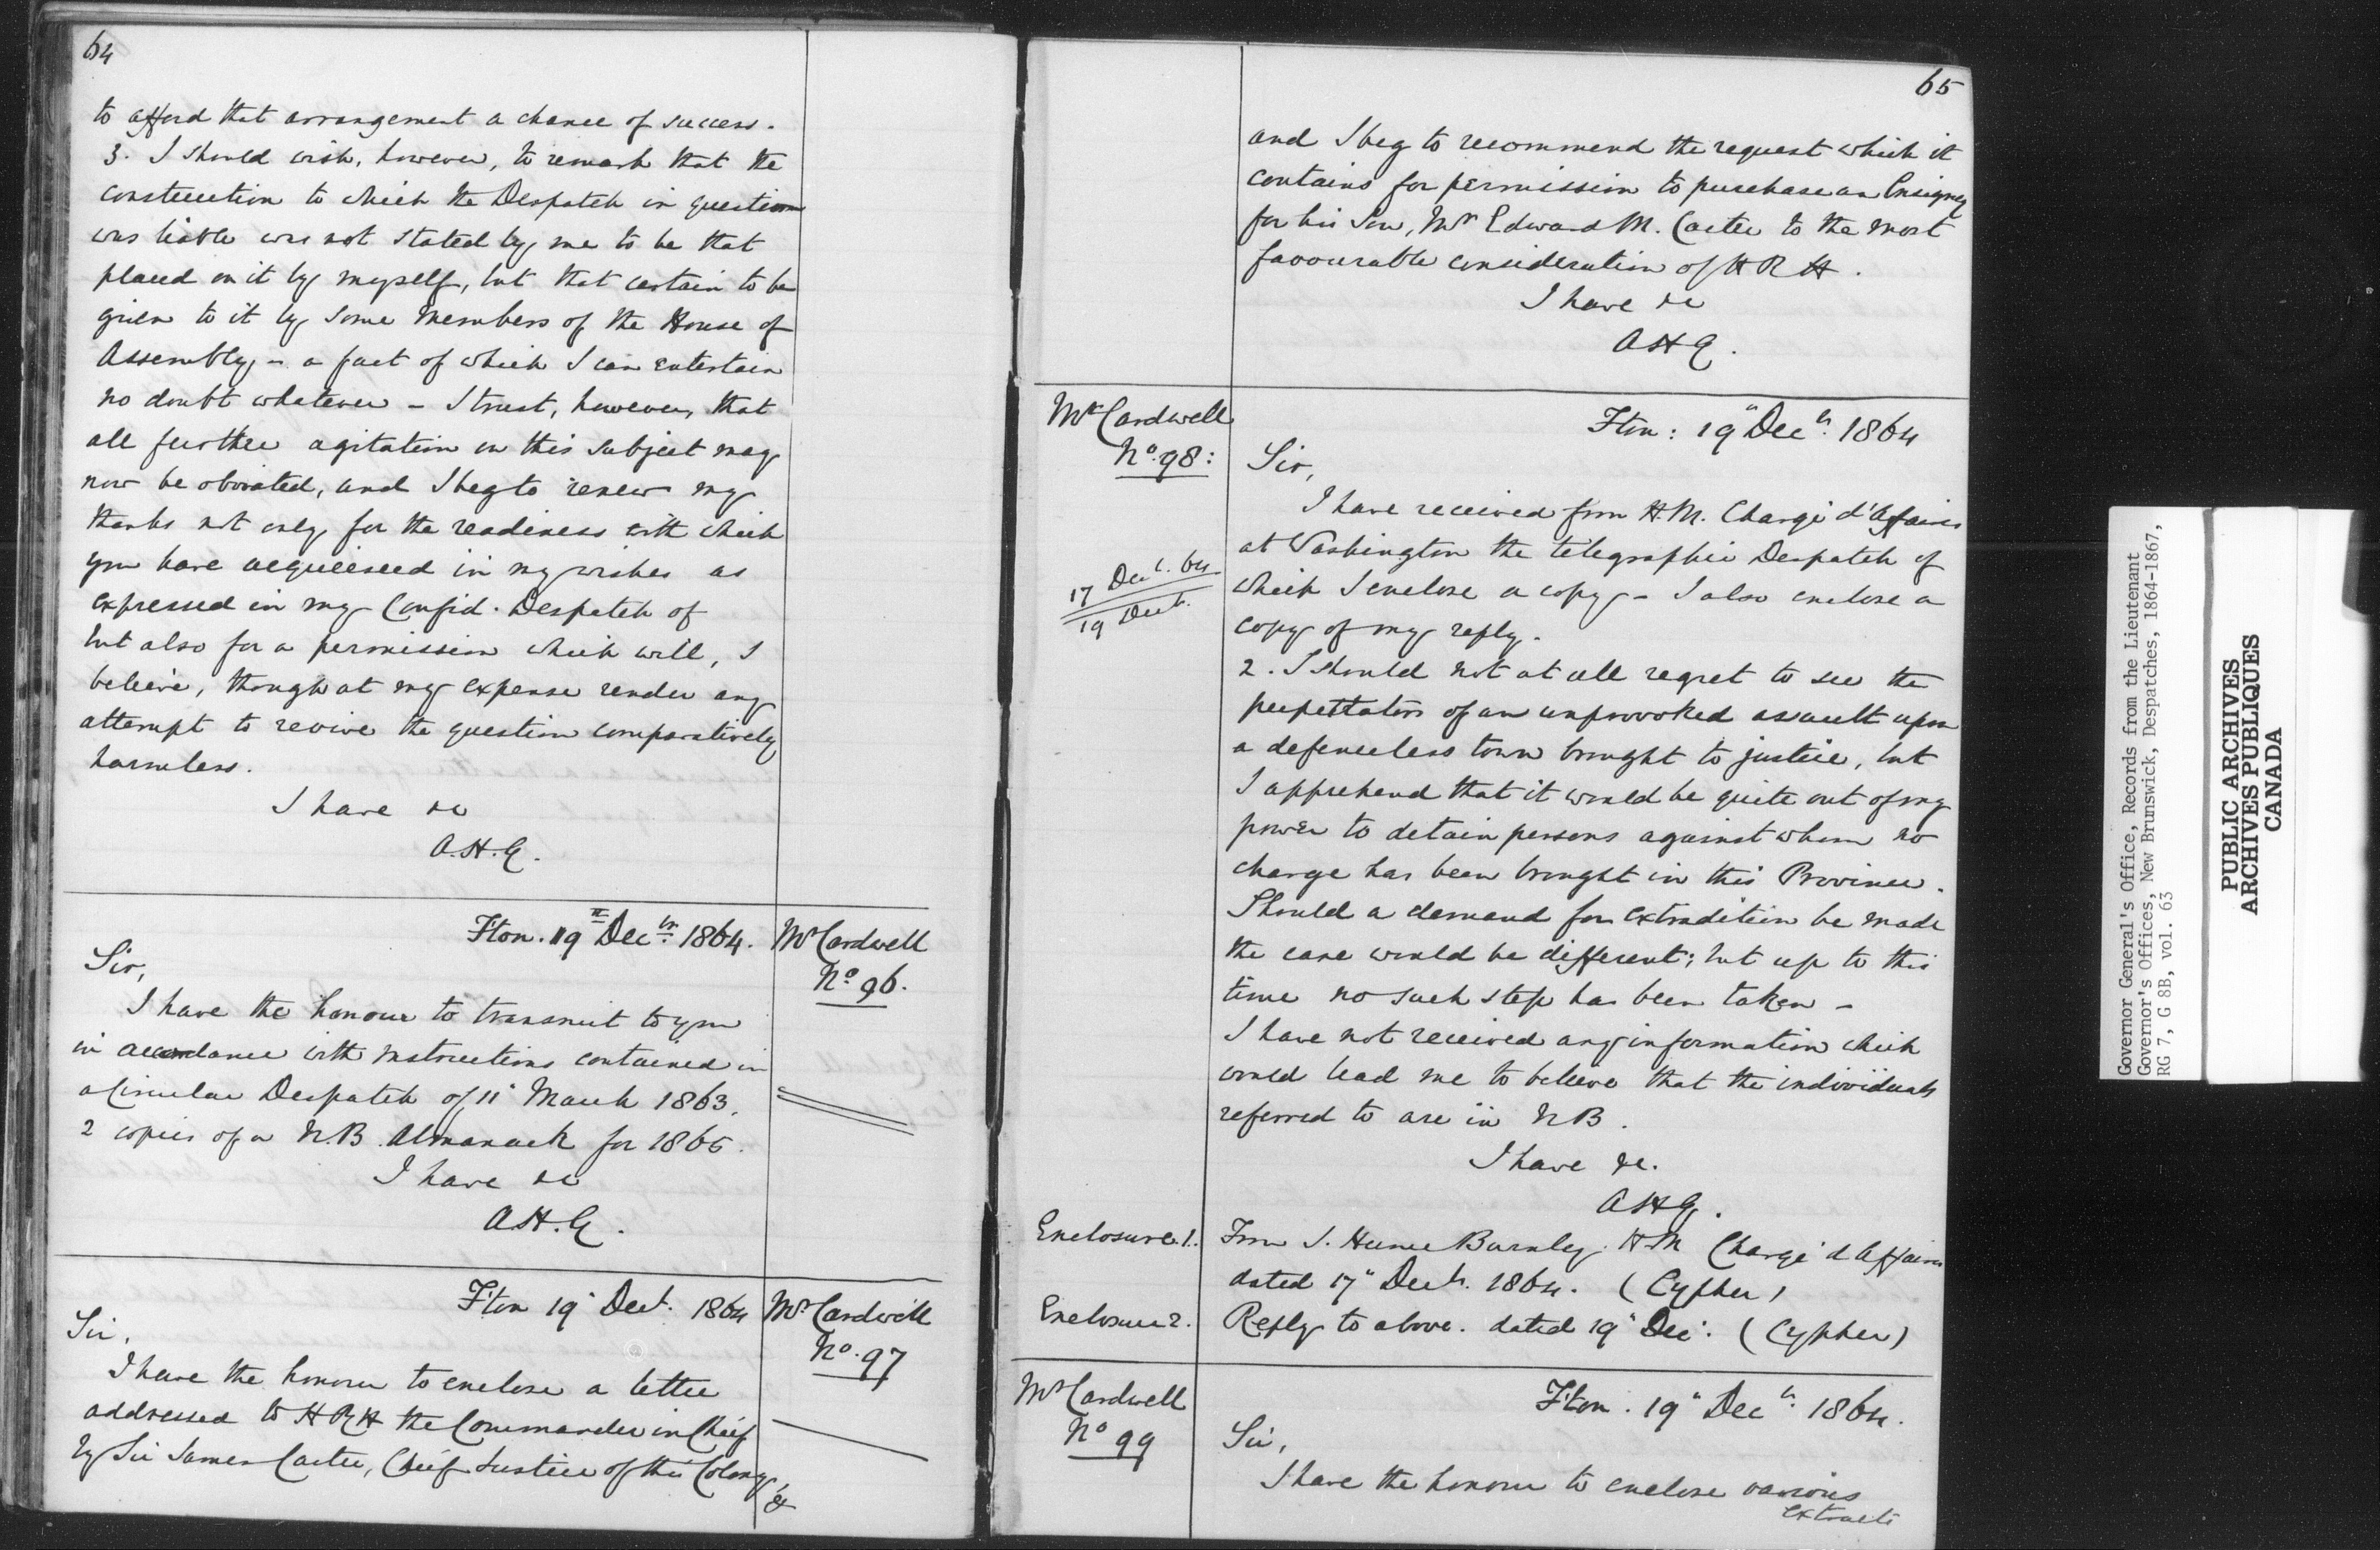 64
to afford that arrangement a chance of success.
3. I should wish, however, to remark that the
construction to which the Despatch in question
was liable was not stated by me to be that
placed on it by myself, but that certain to be
given to it by some Members of the House of
Assembly – a fact of which I can entertain
no doubt whatever – I trust, however, that
all further agitation on this subject may
now be obviated, and I beg to renew my
thanks not only for the readiness with which
you have acquiesced in my wishes as
expressed in my Confid. Despatch of
but also for a permission which will, I
believe, though at my expense render any
attempt to revive the question comparatively
harmless.
I have &c
A.H.G.
Fton. 19th Decr. 1864.
Mr Cardwell
No 96.
Sir,
I have the honour to transmit to you
in accordance with instructions contained in
a Circular Despatch of 11" March 1863.
2 copies of a N.B. Almanack for 1865.
I have &c
A.H.G.
Fton 19" Dect. 1864
Mr Cardwell
No. 97
Sir,
I have the honour to enclose a letter
addressed to H R H the Commander in Chief
by Sir James Carter, Chief Justice of this Colony,
&
65
and I beg to recommend the request which it
contains for permission to purchase an Ensigncy
for his Son, Mr Edward M. Carter to the most
favourable consideration of H R H.
I have &c
A H G.
Mr Cardwell
No. 98:
Fton: 19" Decr. 1864
Sir,
I have received from H.M. Chargé d'Affaires
at Washington the telegraphic Despatch of
which I enclose a copy – I also enclose a
copy of my reply.
17 Dec. 64.
19 Dec.
2. I should not at all regret to see the
perpetrators of an unprovoked assault upon
a defenceless town brought to justice, but
I apprehend that it would be quite out of my
power to detain persons against whom no
charge has been brought in this Province.
Should a demand for extradition be made
the case would be different; but up to this
time no such step has been taken –
I have not received any information which
would lead me to believe that the individuals
referred to are in N B.
I have &c.
A H G.
Enclosure 1.
From J. Hume Burnley. H M Chargé d Affaires
dated 17" Decr. 1864. (Cypher)
Enclosure 2.
Reply to above. dated 19" Dec. (Cypher)
Mr Cardwell
No 99
Fton. 19" Decr. 1864.
Sir,
I have the honour to enclose various
extracts
Governor General's Office, Records from the Lieutenant
Governor's Offices, New Brunswick, Despatches, 1864-1867,
RG 7, G 8B, vol. 63
PUBLIC ARCHIVES
ARCHIVES PUBLIQUES
CANADA